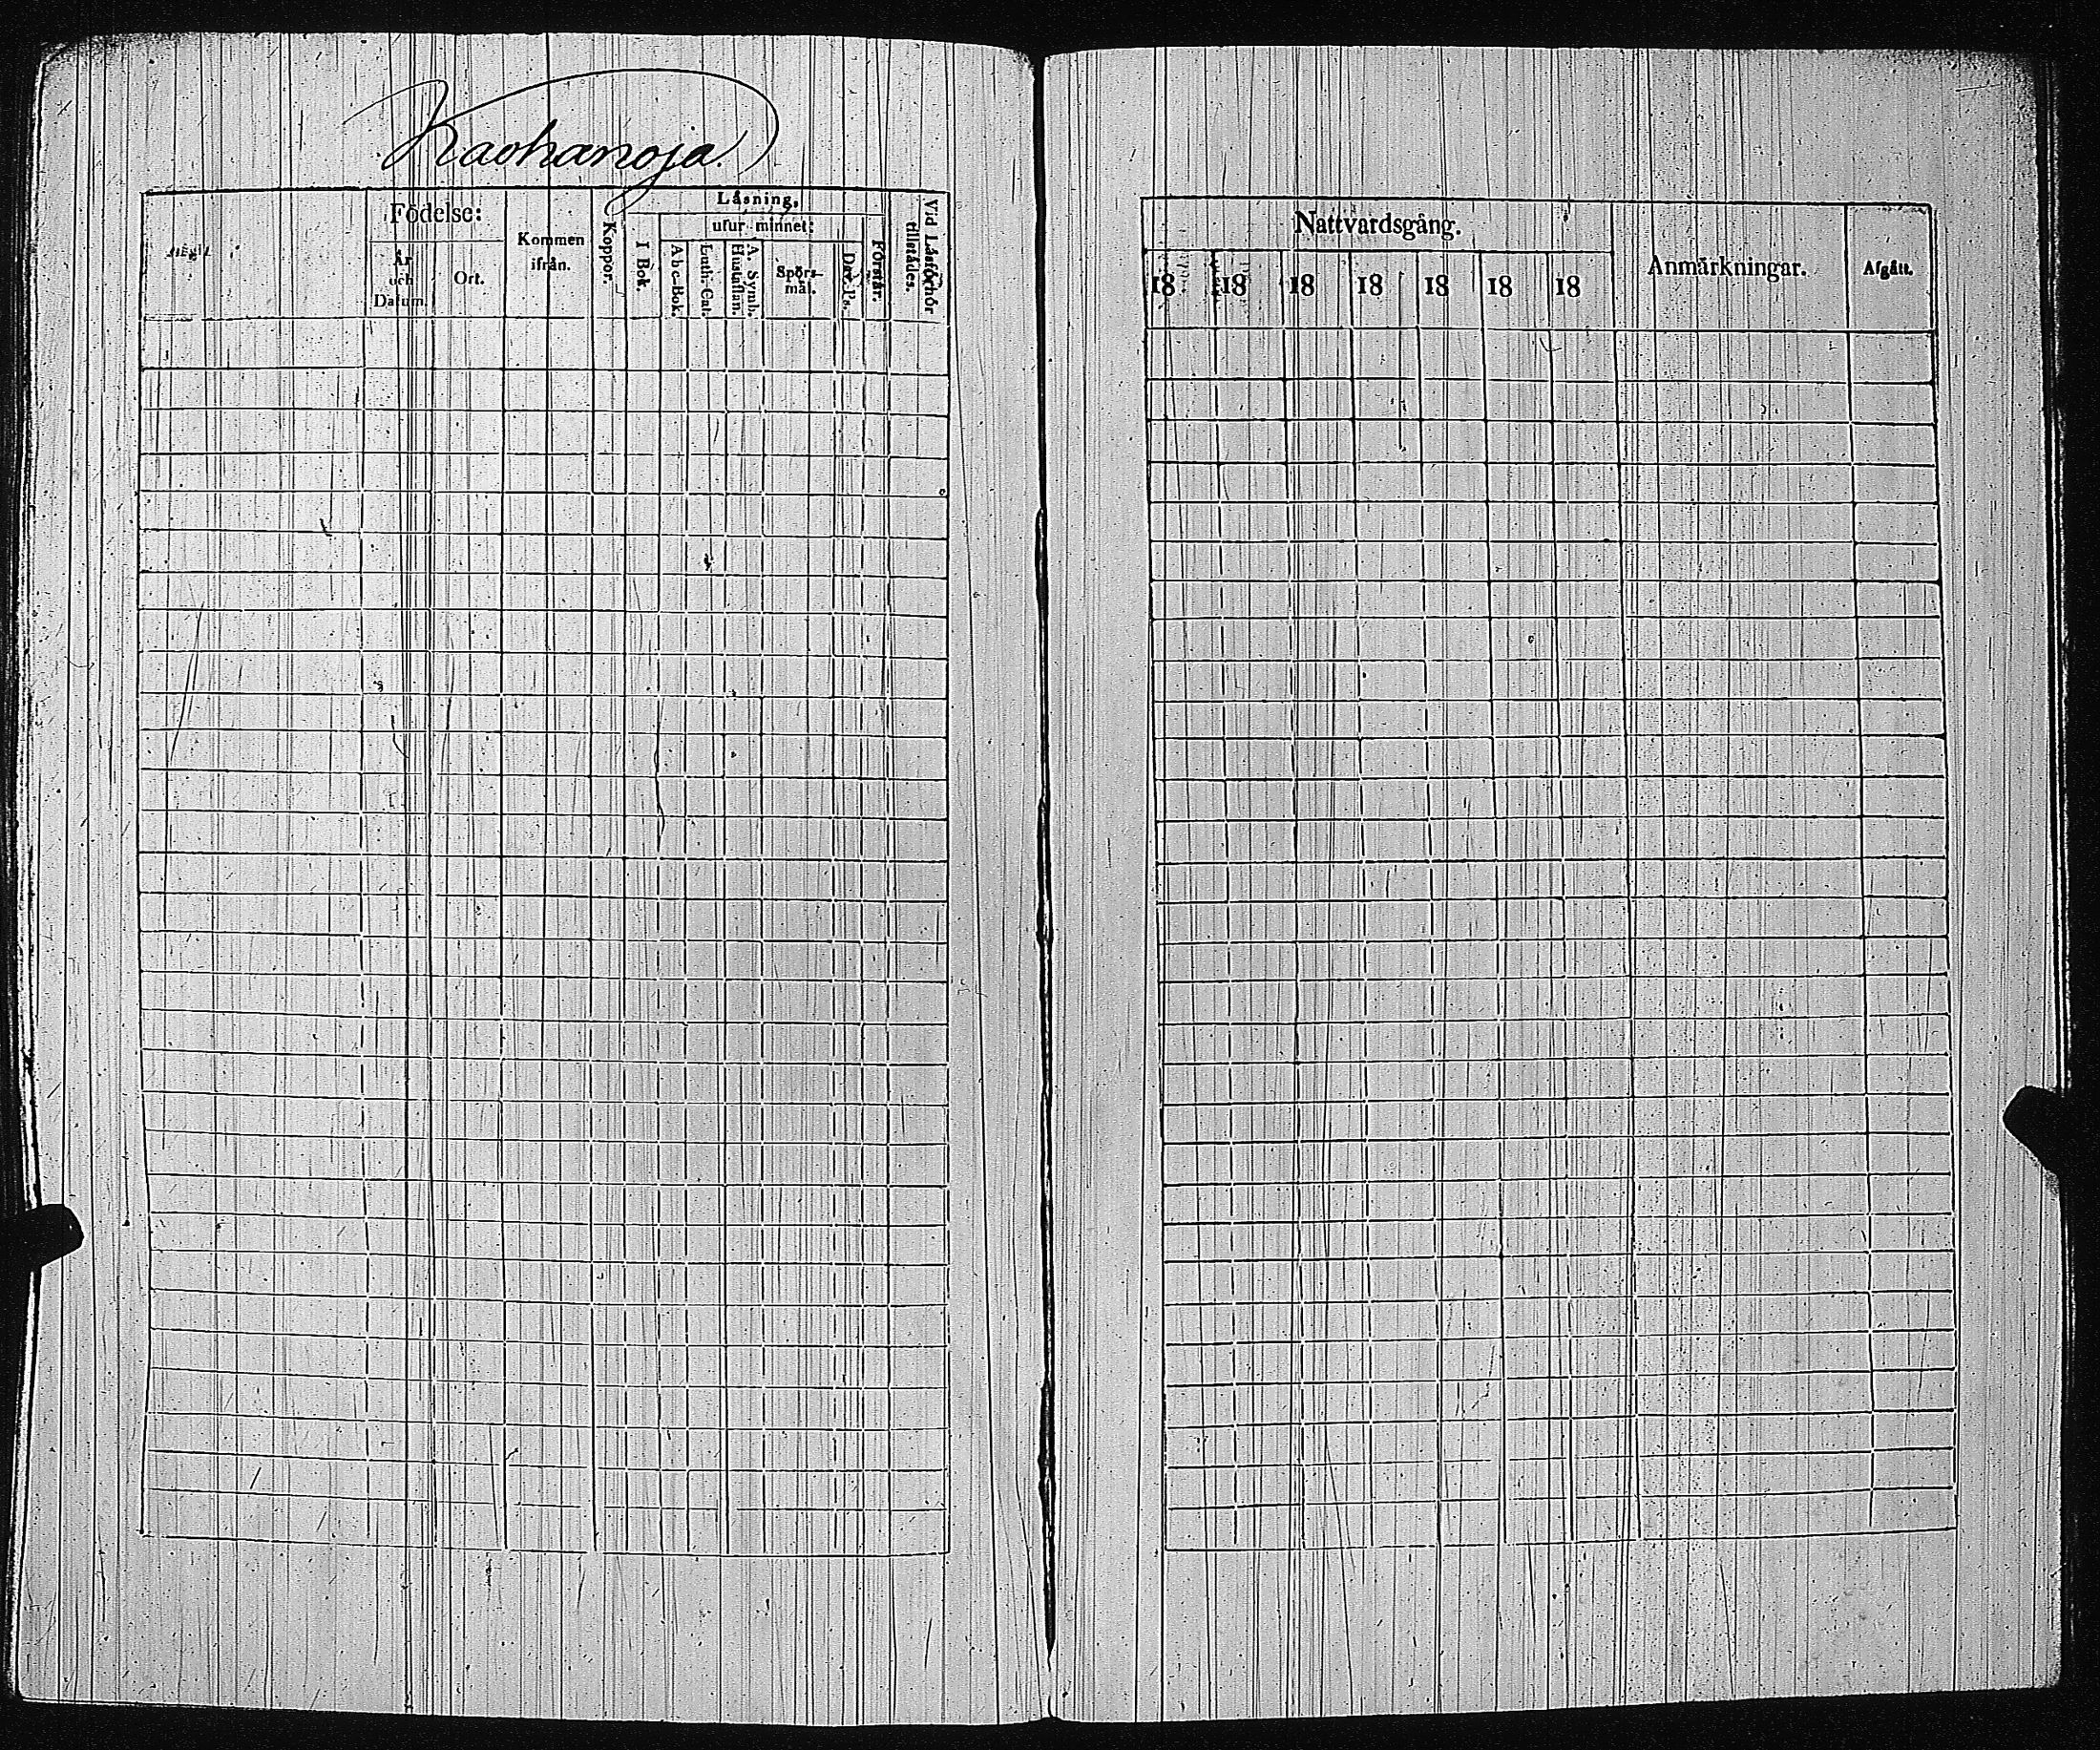 Kaohanoja.
Födelse:
År
och
Datum.
Ort.
Kommen
ifrån.
Koppor.
Låsning,
I Bok.
utur minnet:
Abc-Bok.
Luth. Cat.
A. Symb.
Hustaflan.
Spörs-
mål.
Dav. Ps.
Förstår.
Vid Läsförhör
tillstädes.
Nattvardsgång.
18 18 18 18 18 18 18
Anmärkningar.
Afgått.